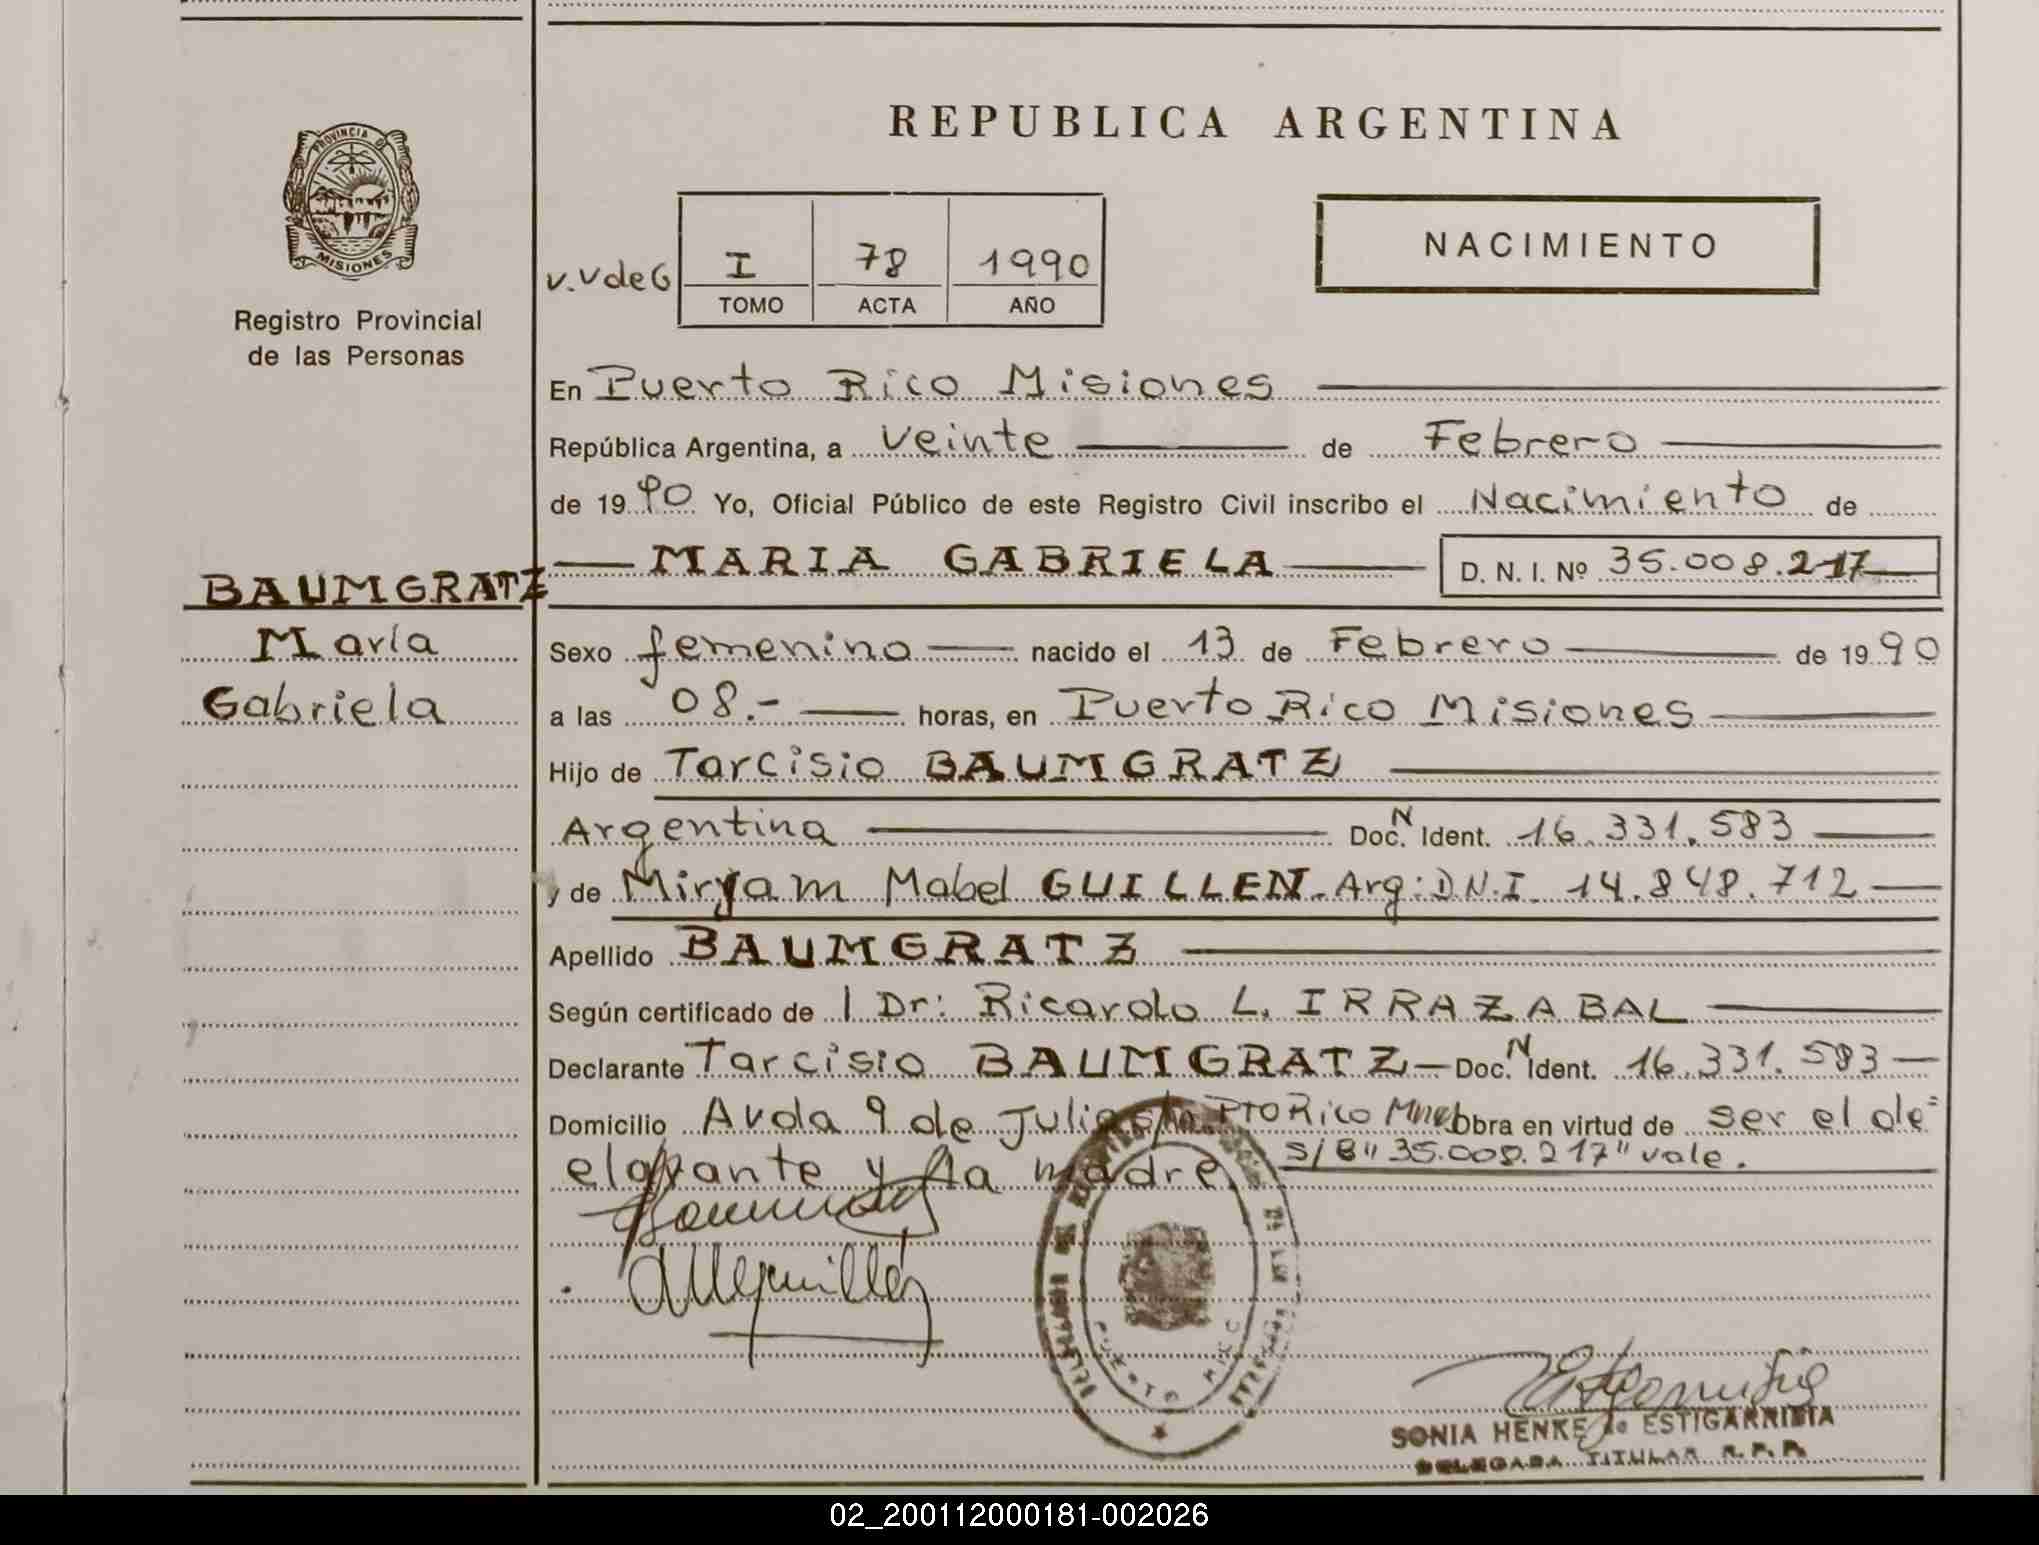 REPUBLICA ARGENTINA
PROVINCIA DE
MISIONES
Registro Provincial
de las Personas
NACIMIENTO
v.v de G
I 78 1990
TOMO ACTA AÑO
En Puerto Rico Misiones
República Argentina, a veinte de Febrero
de 1990 Yo, Oficial Público de este Registro Civil inscribo el Nacimiento de
MARIA GABRIELA D. N. I. Nº 35.008.217
BAUMGRATZ
María
Gabriela
Sexo femenino nacido el 13 de Febrero de 1990
a las 08.- horas, en Puerto Rico Misiones
Hijo de Tarcisio BAUMGRATZ
Argentina Doc. N Ident. 16.331.583
y de Miryam Mabel GUILLEN - Arg: D.N.I. 14.848.712
Apellido BAUMGRATZ
Según certificado de l Dr: Ricardo L. IRRAZABAL
Declarante Tarcisio BAUMGRATZ - Doc. N Ident. 16.331.583
Domicilio Avda 9 de Julio s/n Pto Rico Mnes Obra en virtud de ser el de=
elarante y la madre. S/B" 35.008.217" vale.
PUERTO RICO
SONIA HENKE de ESTIGARRIBIA
DELEGADA TITULAR R. P. P.
02_200112000181-002026